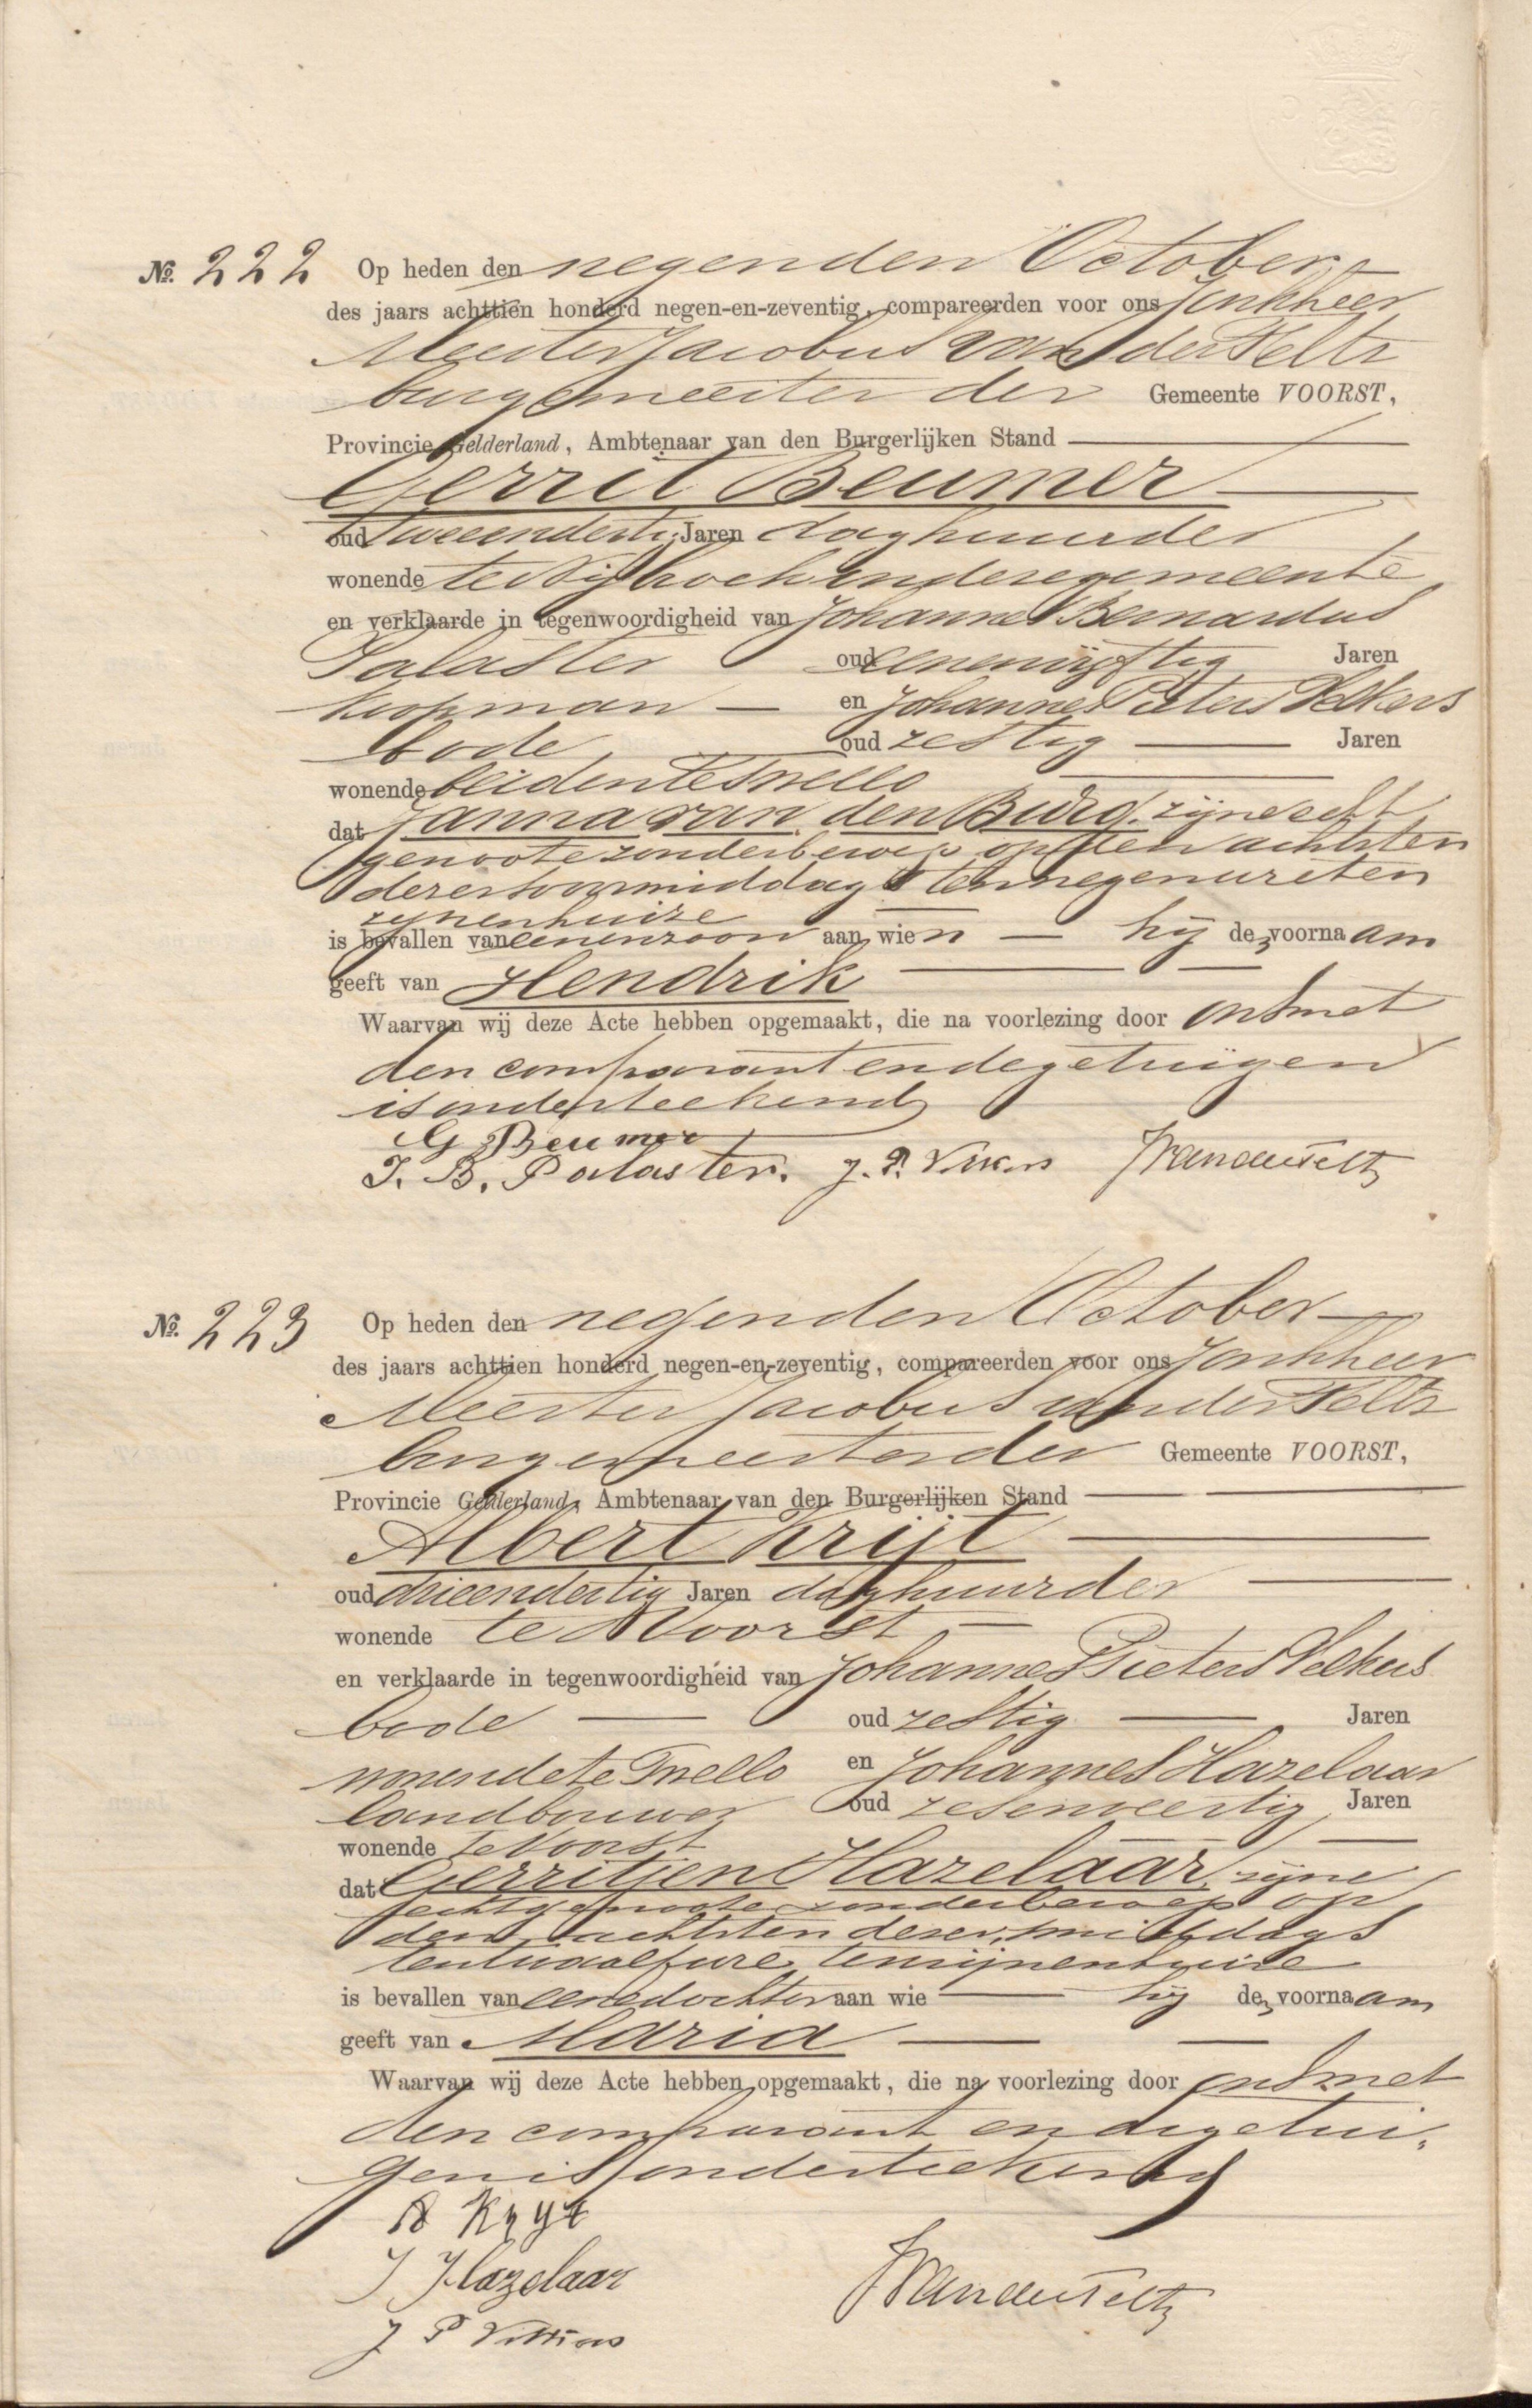 No. 222 Op heden den negenden October
des jaars achttien honderd negen-en-zeventig, compareerden voor ons Jonkheer
Meester Jacobus van der Feltz
burgemeester der Gemeente VOORST,
Provincie Gelderland, Ambtenaar van den Burgerlijken Stand
Gerrit Beumer
oud tweeendertig Jaren daghuurder
wonende te Nijbroek in deze gemeente
en verklaarde in tegenwoordigheid van Johannes Bernardus
Palaster oud eenenvijftig Jaren
koopman en Johannes Pieters Velkers
bode oud zestig Jaren
wonende beiden te Twello
dat Janna van den Burg, zijne echt
genoote zonder beroep op den achtsten
dezer voormiddags ten negen ure ten
zijnen huize
is bevallen van eenen zoon aan wien hij de voornaam
geeft van Hendrik
Waarvan wij deze Acte hebben opgemaakt, die na voorlezing door ons met
den comparant en de getuigen
is onderteekend
G Beumer
J. B. Palaster. J. P. Velkers JvanderFeltz
No. 223 Op heden den negenden October
des jaars achttien honderd negen-en-zeventig, compareerden voor ons Jonkheer
Meester Jacobus van der Feltz
burgemeester der Gemeente VOORST,
Provincie Gelderland, Ambtenaar van den Burgerlijken Stand
Albert Krijt
oud drieendertig Jaren daghuurder
wonende te Voorst
en verklaarde in tegenwoordigheid van Johannes Pieters Velkers
bode oud zestig Jaren
wonende te Twello en Johannes Hazelaar
landbouwer oud zesenveertig Jaren
wonende te Voorst
dat Gerritjen Hazelaar, zijne
echtgenoote zonder beroep op
den achtsten dezer, middags
ten twaalf ure ten zijnen huize
is bevallen van eene dochter aan wie hij de voornaam
geeft van Maria
Waarvan wij deze Acte hebben opgemaakt, die na voorlezing door ons met
den comparant en de getui-
gen is onderteekend
A Kryt
J Hazelaar JvanderFeltz
J P Velkers